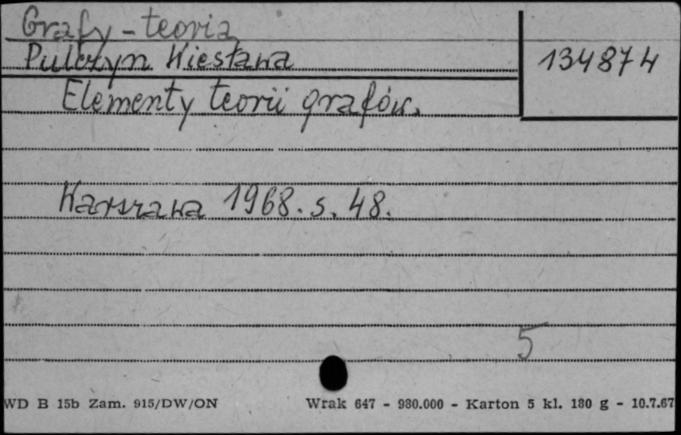 Grafy - teoria
Pulczyn Wiesława
134874
Elementy teorii grafów.
Warszawa 1968. s. 48.
5
WD B 15b Zam. 915/DW/ON
Wrak 647 - 980.000 - Karton 5 kl. 180 g - 10.7.67